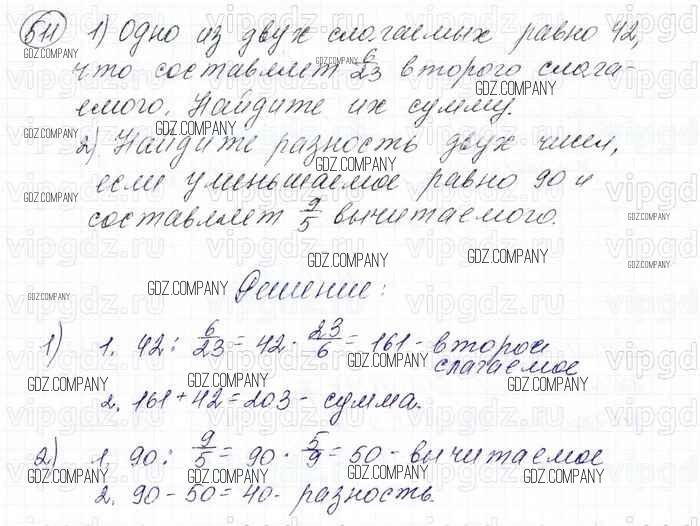 511 1) Одно из двух слагаемых равно 42,
GDZ.COMPANY GDZ.COMPANY
что составляет 6/23 второго слага-
GDZ.COMPANY GDZ.COMPANY
емого. Найдите их сумму.
GDZ.COMPANY
2) Найдите разность двух чисел,
GDZ.COMPANY
если уменьшаемое равно 90 и
GDZ.COMPANY
составляет 9/5 вычитаемого.
GDZ.COMPANY
vipgdz.ru vipgdz.ru vipgdz.ru
GDZ.COMPANY GDZ.COMPANY
GDZ.COMPANY
Решение:
GDZ.COMPANY GDZ.COMPANY
vipgdz.ru vipgdz.ru vipgdz.ru
1) 1. 42 : 6/23 = 42 · 23/6 = 161 - второй
слагаемое
GDZ.COMPANY GDZ.COMPANY GDZ.COMPANY GDZ.COMPANY
2. 161 + 42 = 203 - сумма.
2) 1. 90 : 9/5 = 90 · 5/9 = 50 - вычитаемое
GDZ.COMPANY GDZ.COMPANY GDZ.COMPANY GDZ.COMPANY
2. 90 - 50 = 40 - разность.